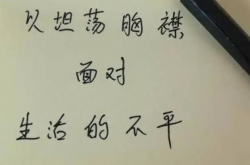 以坦荡胸襟
面对
生活的不平